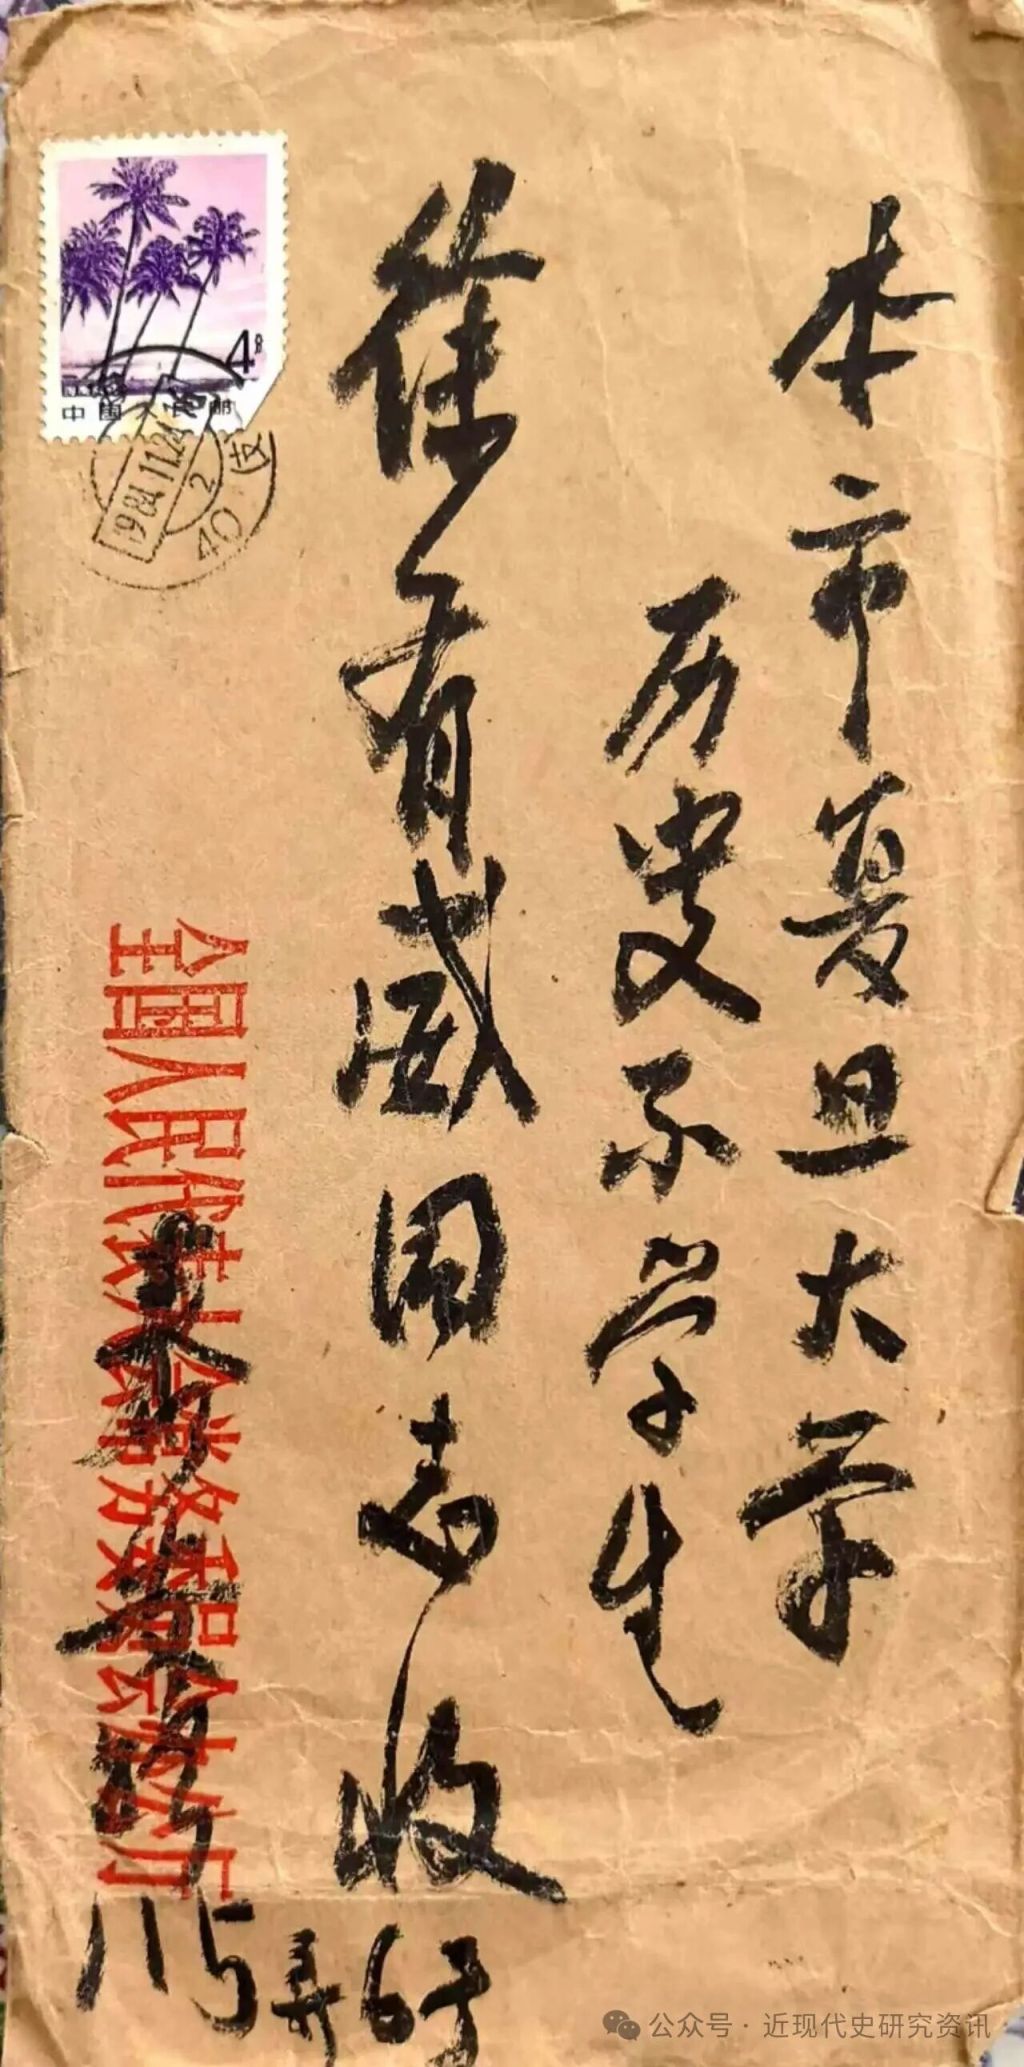 本市复旦大学
历史系学生
徐有威同志收
全国人民代表大会常务委员会办公厅
115弄6号
4分
中国人民邮
1984.11.24
2
40
公众号 · 近现代史研究资讯